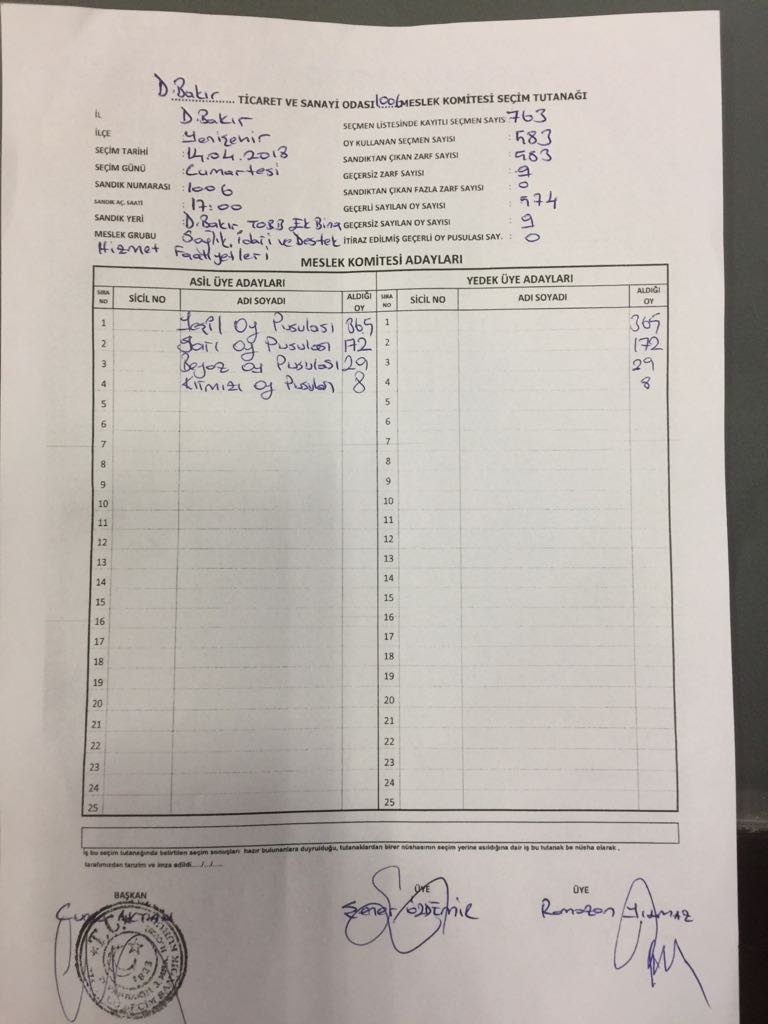 D.Bakır..... TİCARET VE SANAYİ ODASI 1006 MESLEK KOMİTESİ SEÇİM TUTANAĞI
İL D.Bakır SEÇMEN LİSTESİNDE KAYITLI SEÇMEN SAYIS 763
İLÇE Yenişehir OY KULLANAN SEÇMEN SAYISI :583
SEÇİM TARİHİ :14.04.2018 SANDIKTAN ÇIKAN ZARF SAYISI :583
SEÇİM GÜNÜ :Cumartesi GEÇERSİZ ZARF SAYISI :9
SANDIK NUMARASI :1006 SANDIKTAN ÇIKAN FAZLA ZARF SAYISI :0
SANDIK AÇ. SAATİ :17:00 GEÇERLİ SAYILAN OY SAYISI :574
SANDIK YERİ :D.Bakır, TOBB Ek Bina GEÇERSİZ SAYILAN OY SAYISI :9
MESLEK GRUBU :Sağlık, idari ve Destek İTİRAZ EDİLMİŞ GEÇERLİ OY PUSULASI SAY. : 0
Hizmet Faaliyetleri
MESLEK KOMİTESİ ADAYLARI
ASİL ÜYE ADAYLARI YEDEK ÜYE ADAYLARI
SIRA NO SİCİL NO ADI SOYADI ALDIĞI OY SIRA NO SİCİL NO ADI SOYADI ALDIĞI OY
1 Yeşil Oy Pusulası 365 1 365
2 Sarı Oy Pusulası 172 2 172
3 Beyaz Oy Pusulası 29 3 29
4 Kırmızı Oy Pusulası 8 4 8
5 5
6 6
7 7
8 8
9 9
10 10
11 11
12 12
13 13
14 14
15 15
16 16
17 17
18 18
19 19
20 20
21 21
22 22
23 23
24 24
25 25
iş bu seçim tutanağında belirtilen seçim sonuçları hazır bulunanlara duyrulduğu, tutanaklardan birer nüshasının seçim yerine asıldığına dair iş bu tutanak be nüsha olarak ,
tarafımızdan tanzim ve imza edildi..../../....
BAŞKAN ÜYE ÜYE
AKTHAN ÖZDEMİR Ramazan YILMAZ
T.C.